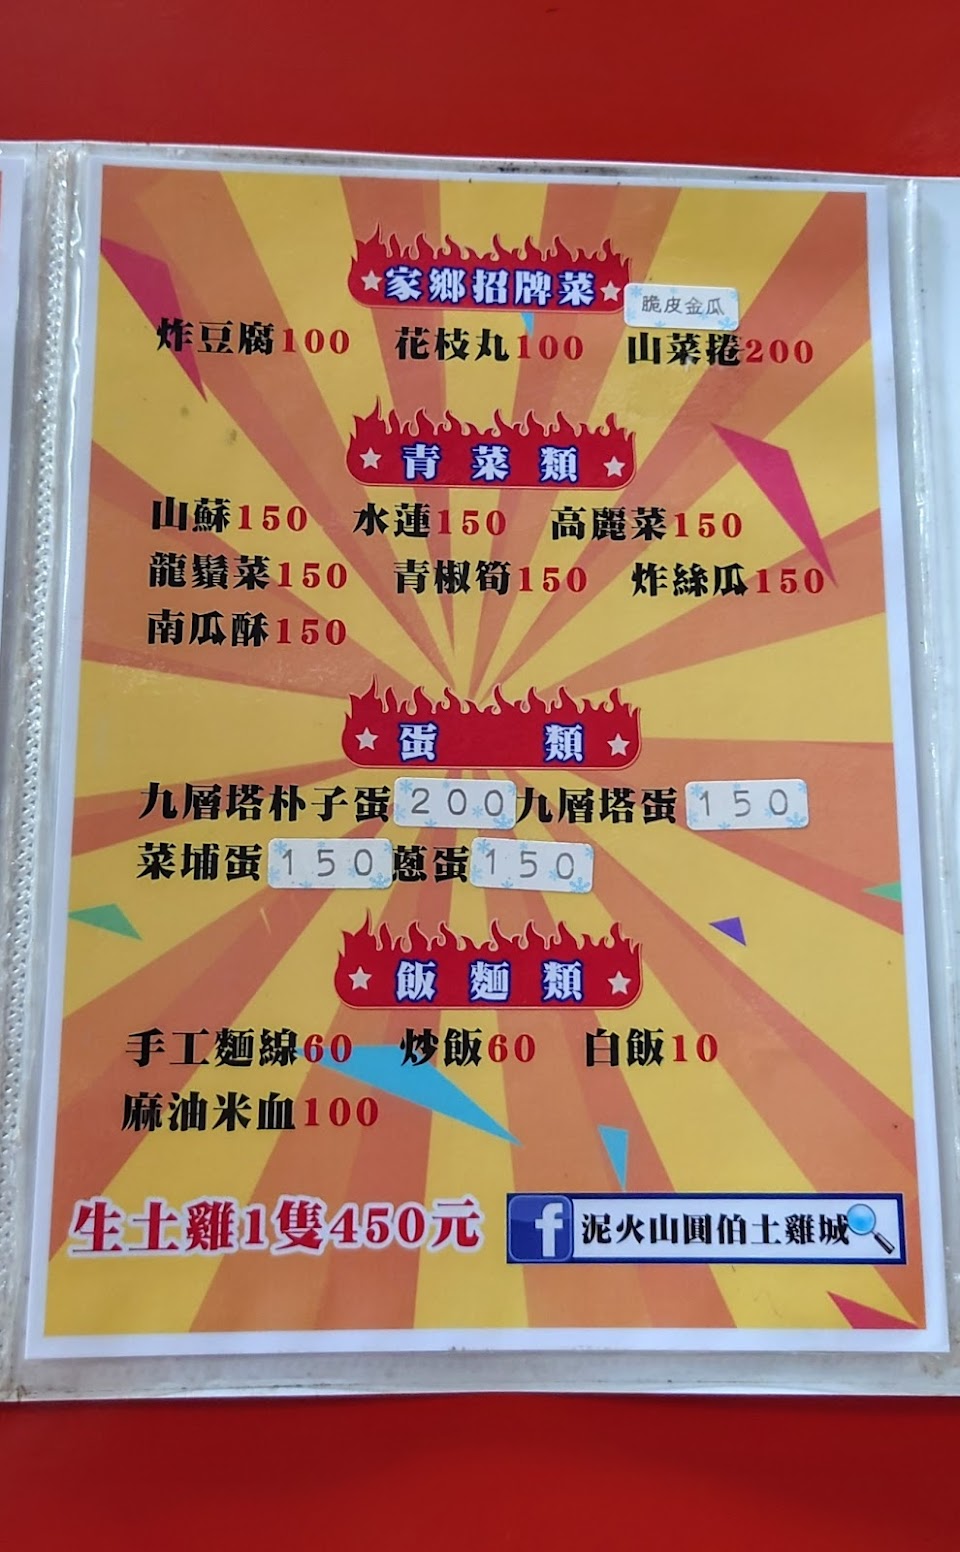 家鄉招牌菜
脆皮金瓜
炸豆腐100 花枝丸100 山菜捲200
青菜類
山蘇150 水蓮150 高麗菜150
龍鬚菜150 青椒筍150 炸絲瓜150
南瓜酥150
蛋類
九層塔朴子蛋200九層塔蛋150
菜埔蛋150蔥蛋150
飯麵類
手工麵線60 炒飯60 白飯10
麻油米血100
生土雞1隻450元
f 泥火山圓伯土雞城